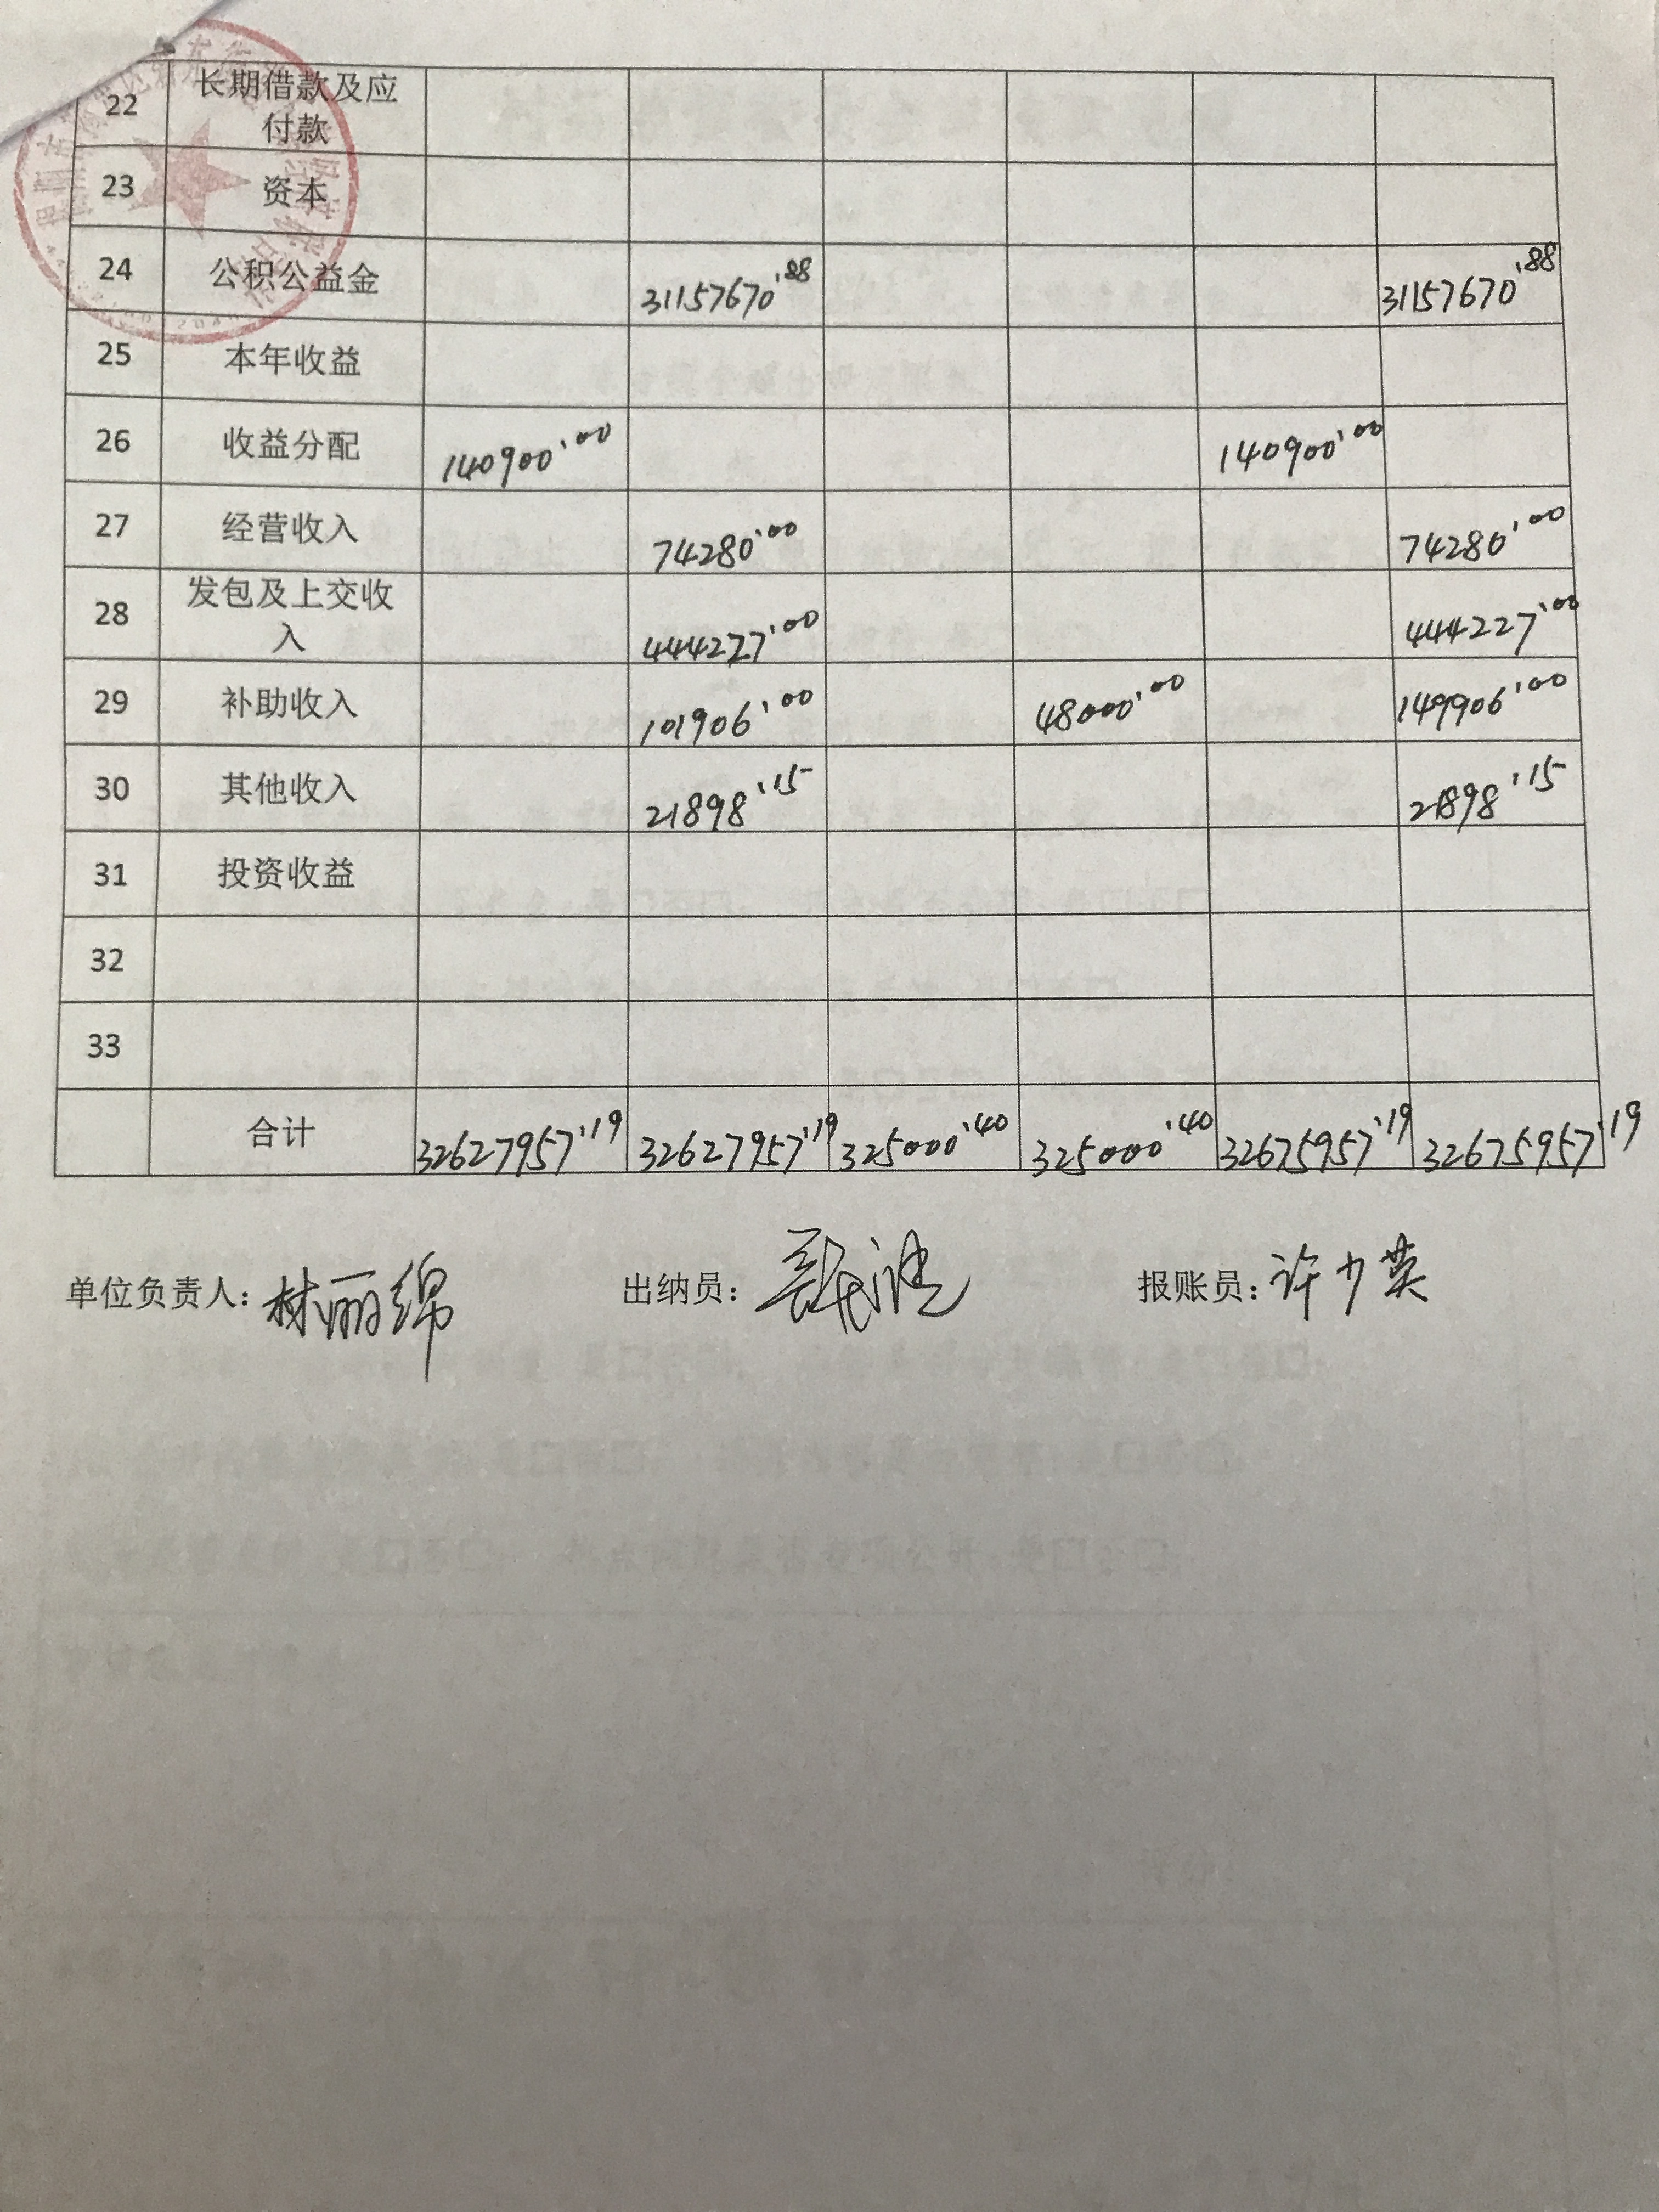 22 长期借款及应
付款
23 资本
24 公积公益金 31157670.88 31157670.88
25 本年收益
26 收益分配 140900.00 140900.00
27 经营收入 74280.00 74280.00
28 发包及上交收
入 444227.00 444227.00
29 补助收入 101906.00 48000.00 149906.00
30 其他收入 21898.15 21898.15
31 投资收益
32
33
合计 32627957.19 32627957.19 325000.40 325000.40 32675957.19 32675957.19
单位负责人: 林丽绵 出纳员: 报账员: 许少英